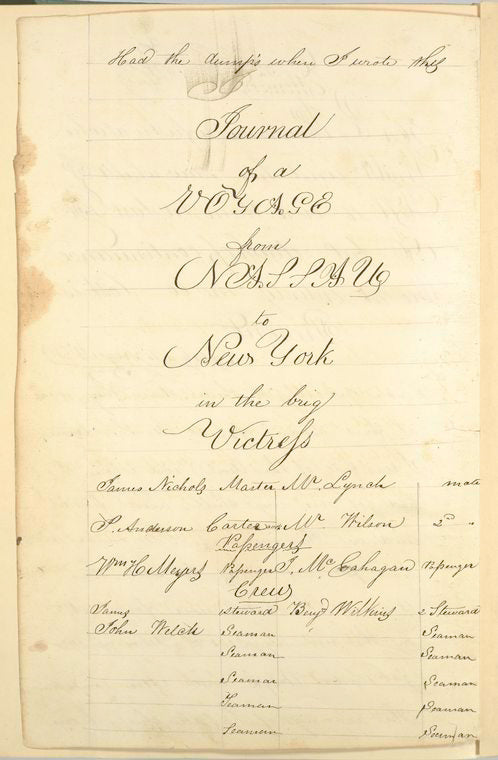 Had the dumps when I wrote this
Journal
of a
VOYAGE
from
NASSAU
to
New York
in the brig
Victress
James Nichols Master Mr. Lynch mate
P. Anderson Carter Mr. Wilson 2d "
Passengers
Wm H Meyers Passenger J. McCahagan Passenger
Crew
James Steward Benj Wilkins 2 Steward
John Welch Seaman Seaman
Seaman Seaman
Seaman Seaman
Seaman Seaman
Seaman Seaman